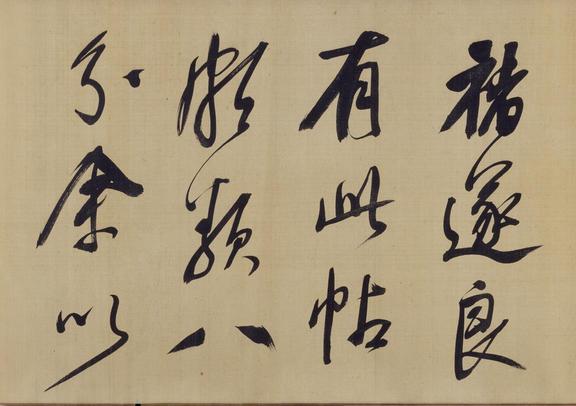 褚遂良
有此帖
頗類八
分余以